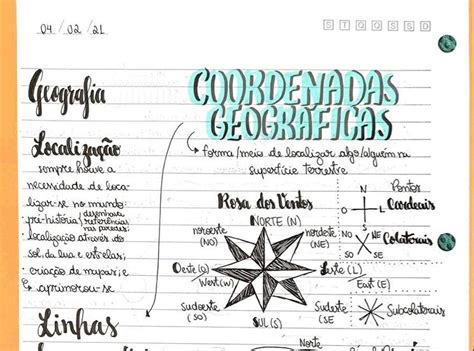 04 / 02 / 21
S T Q Q S S D
Geografia
COORDENADAS
GEOGRÁFICAS
forma/meio de localizar algo/alguém na
superfície terrestre
Localização
sempre houve a
necessidade de loca-
lizar-se no mundo:
pré-história (desenhavam
referências
nas paredes);
localização através do
sol, da lua e estrelas;
criação de mapas; e
aprimorou-se
Linhas
Rosa dos Ventos
NORTE (N)
noroeste
(NO)
nordeste
(NE)
Oeste (O)
West (W)
Leste (L)
East (E)
Sudoeste
(SO)
SUL (S)
Sudeste
(SE)
Pontos
Cardeais
N
O
L
S
Colaterais
NO
NE
SO
SE
Subcolaterais
Norte